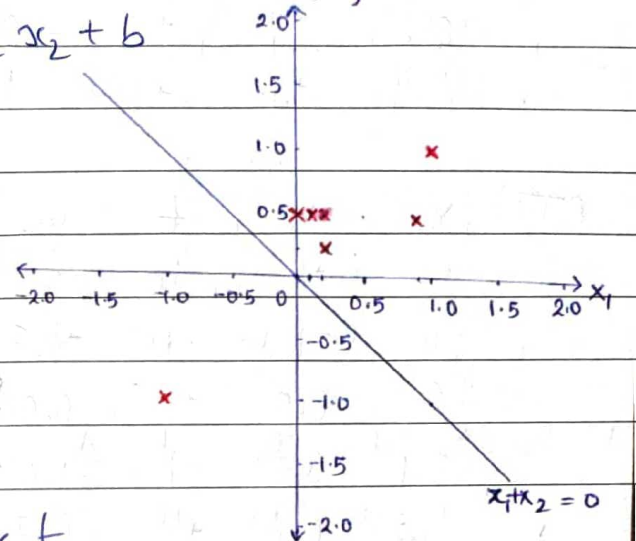 x₂ + b
2.0
1.5
1.0
0.5
-2.0 -1.5 -1.0 -0.5 0 0.5 1.0 1.5 2.0 x₁
-0.5
-1.0
-1.5
x₁+x₂ = 0
-2.0